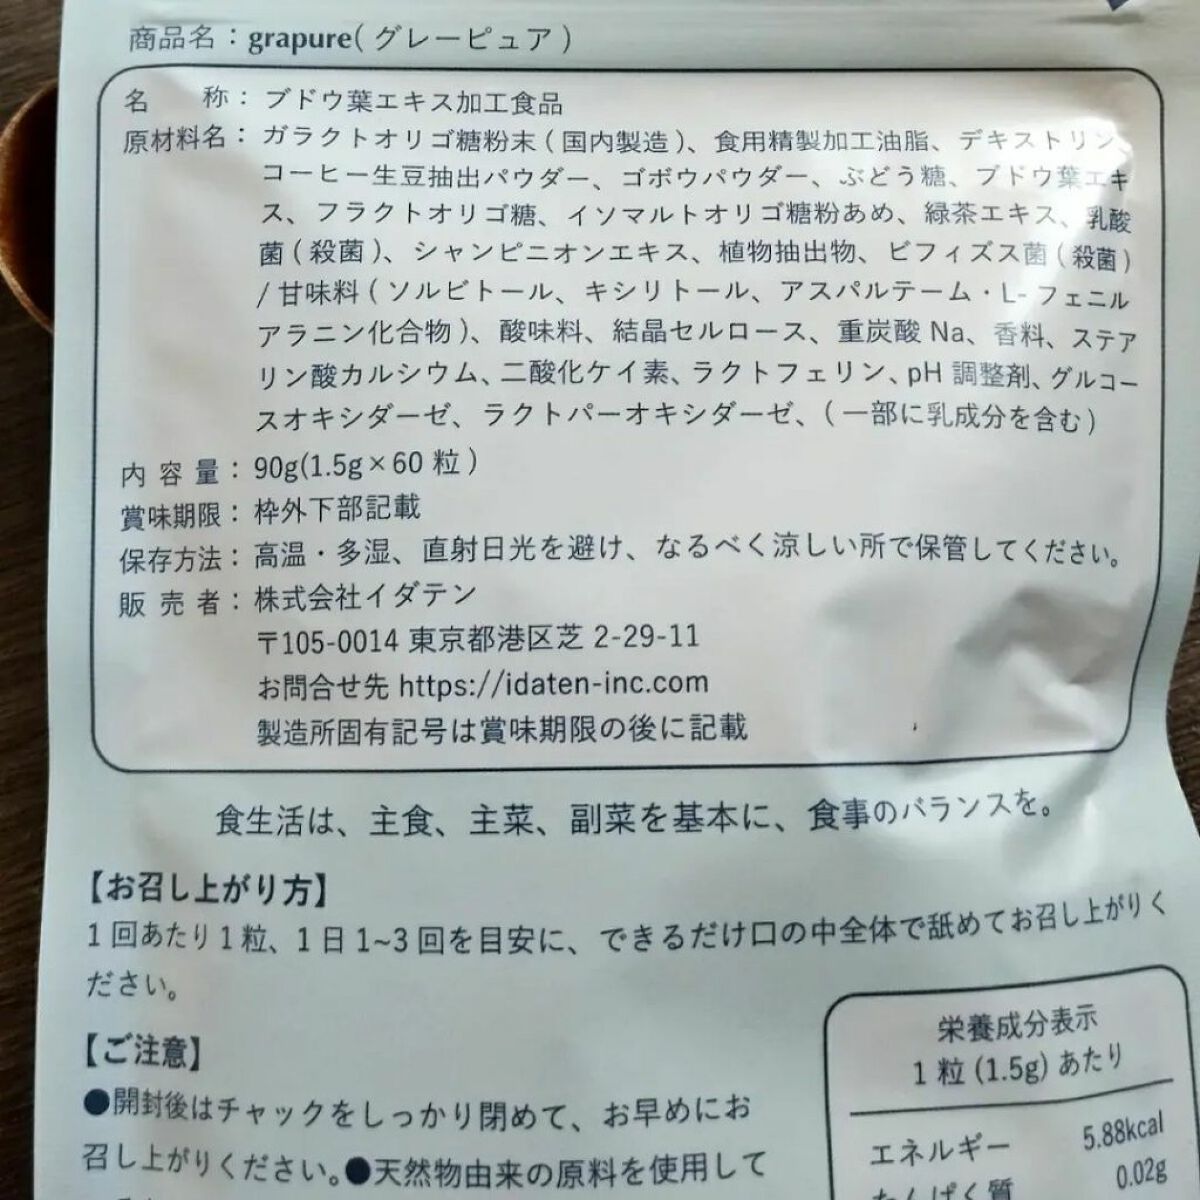 商品名：grapure(グレーピュア)
名　称：ブドウ葉エキス加工食品
原材料名：ガラクトオリゴ糖粉末(国内製造)、食用精製加工油脂、デキストリン、
コーヒー生豆抽出パウダー、ゴボウパウダー、ぶどう糖、ブドウ葉エキ
ス、フラクトオリゴ糖、イソマルトオリゴ糖粉あめ、緑茶エキス、乳酸
菌(殺菌)、シャンピニオンエキス、植物抽出物、ビフィズス菌(殺菌)
/甘味料(ソルビトール、キシリトール、アスパルテーム・L-フェニル
アラニン化合物)、酸味料、結晶セルロース、重炭酸Na、香料、ステア
リン酸カルシウム、二酸化ケイ素、ラクトフェリン、pH調整剤、グルコー
スオキシダーゼ、ラクトパーオキシダーゼ、(一部に乳成分を含む)
内容量：90g(1.5g×60粒)
賞味期限：枠外下部記載
保存方法：高温・多湿、直射日光を避け、なるべく涼しい所で保管してください。
販売者：株式会社イダテン
〒105-0014 東京都港区芝2-29-11
お問合せ先 https://idaten-inc.com
製造所固有記号は賞味期限の後に記載
食生活は、主食、主菜、副菜を基本に、食事のバランスを。
【お召し上がり方】
1回あたり1粒、1日1~3回を目安に、できるだけ口の中全体で舐めてお召し上がりく
ださい。
【ご注意】
●開封後はチャックをしっかり閉めて、お早めにお
召し上がりください。●天然物由来の原料を使用して
栄養成分表示
1粒(1.5g)あたり
エネルギー 5.88kcal
たんぱく質 0.02g